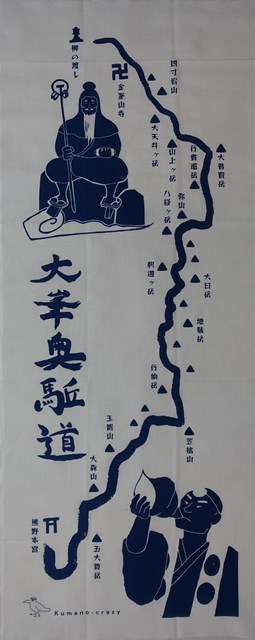 柳の渡し
卍
金峯山寺
四寸岩山
大天井ヶ岳
山上ヶ岳
大普賢岳
行者還岳
弥山
八経ヶ岳
釈迦ヶ岳
大日岳
地蔵岳
大峯奥駈道
行仙岳
笠捨山
玉置山
大森山
五大尊岳
熊野本宮
Kumano-crazy